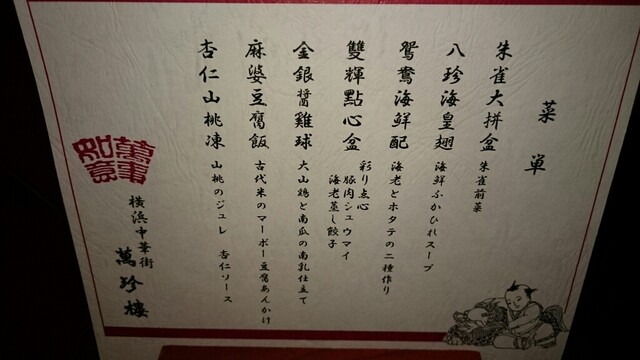 菜単
朱雀大拼盆
朱雀前菜
八珍海皇翅
海鮮ふかひれスープ
鴛鴦海鮮配
海老とホタテの二種作り
雙輝點心盒
彩り点心
豚肉シュウマイ
海老蒸し餃子
金銀醤雞球
大山鶏と南瓜の南乳仕立て
麻婆豆腐飯
古代米のマーボー豆腐あんかけ
杏仁山桃凍
山桃のジュレ 杏仁ソース
萬事如意
横浜中華街
萬珍樓